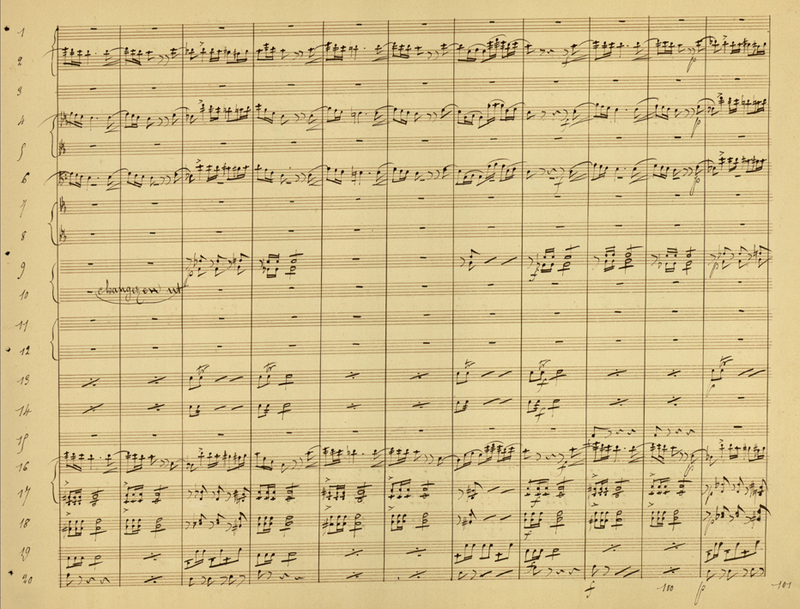 1
2
3
4
5
6
7
8
9
10
changez en ut
11
12
13
14
15
16
17
18
19
20
f
100
p
101